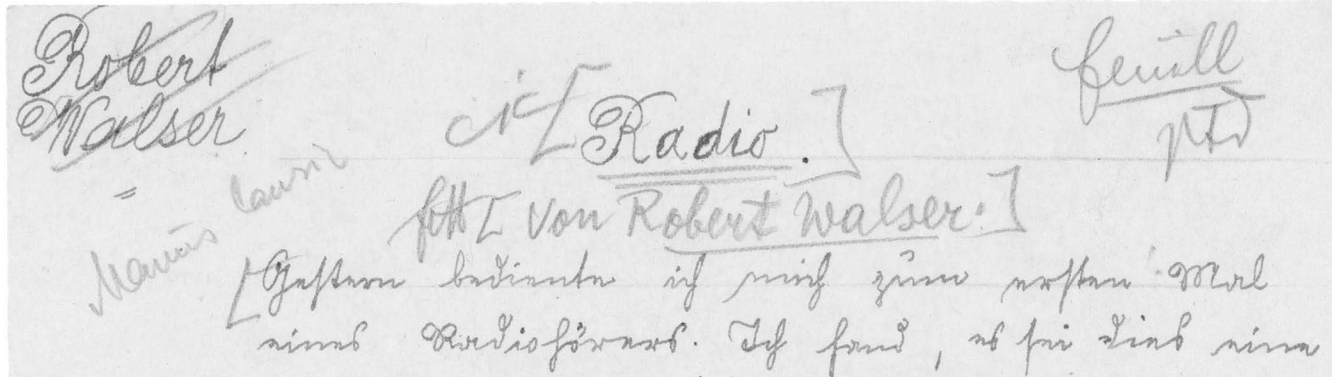 Robert
Walser
feuill
[Radio.]
fett [von Robert Walser.]
[Gestern bediente ich mich zum ersten Mal
eines Radiohörers. Ich fand, es sei dies eine